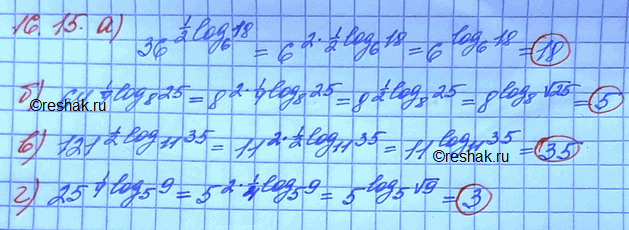 16.15. а) 36^{1/2 log_6 18} = 6^{2·1/2 log_6 18} = 6^{log_6 18} = 18
б) 64^{1/4 log_8 25} = 8^{2·1/4 log_8 25} = 8^{1/2 log_8 25} = 8^{log_8 √25} = 5
©reshak.ru
©reshak.ru
в) 121^{1/2 log_11 35} = 11^{2·1/2 log_11 35} = 11^{log_11 35} = 35
©reshak.ru
г) 25^{1/4 log_5 9} = 5^{2·1/4 log_5 9} = 5^{log_5 √9} = 3